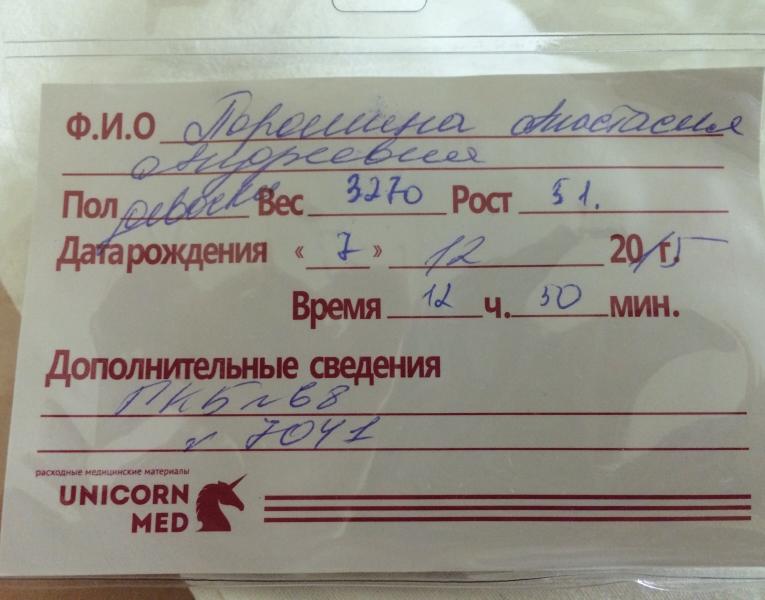 Ф.И.О Порошина Анастасия
Андреевна
Пол девочка Вес 3270 Рост 51.
Дата рождения «7» 12 2015 г.
Время 12 ч. 50 мин.
Дополнительные сведения
ГКБ№68
№ 7041
расходные медицинские материалы
UNICORN
MED